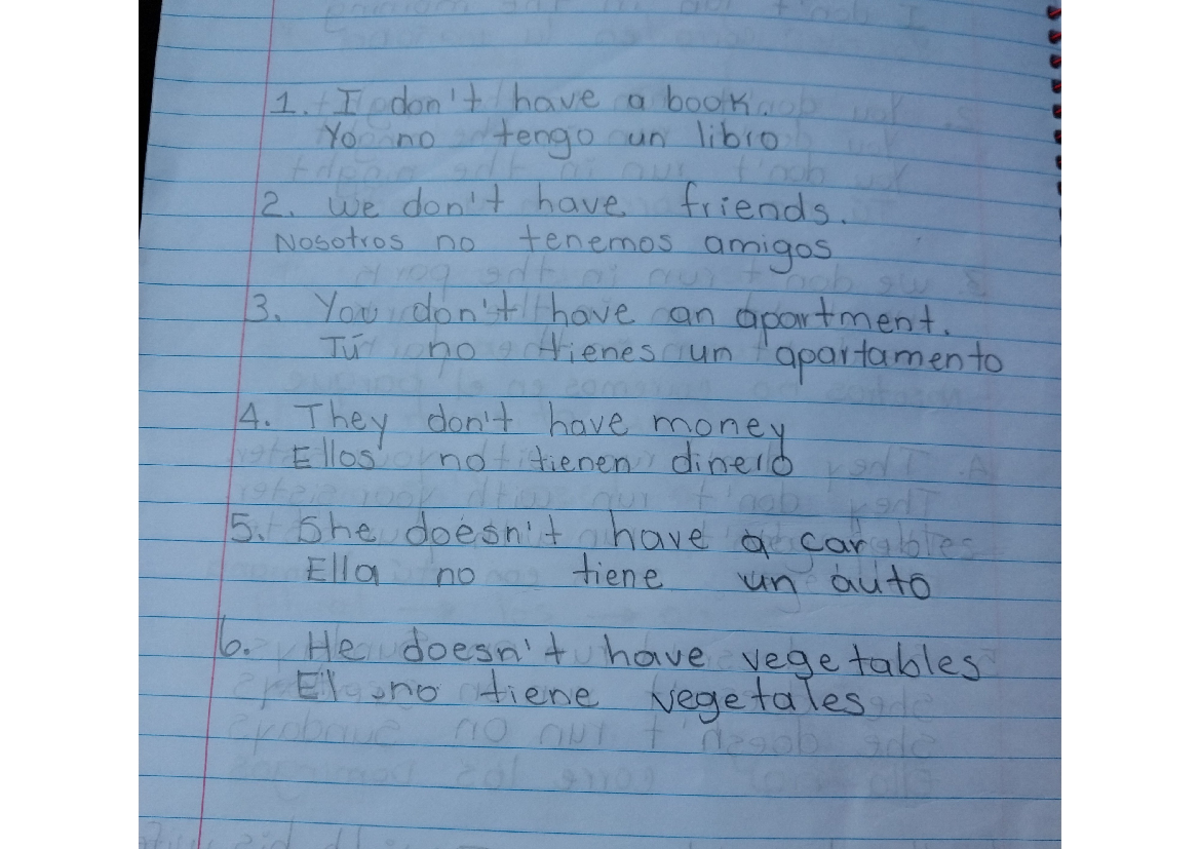 1. I don't have a book.
Yo no tengo un libro
2. We don't have friends.
Nosotros no tenemos amigos
3. You don't have an apartment.
Tú no tienes un apartamento
4. They don't have money
Ellos no tienen dinero
5. She doesn't have a car
Ella no tiene un auto
6. He doesn't have vegetables
Él no tiene vegetales